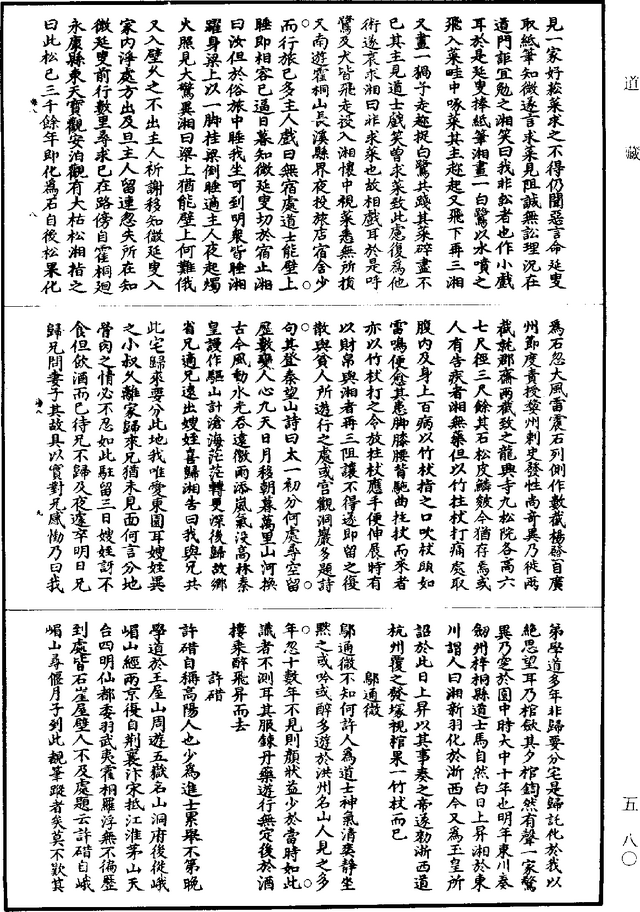 見一家好菘菜求之不得仍聞惡言命延叟
取紙筆知微遂言求菜見阻誠無訟理況在
道門詎宜勉之湘笑曰我非訟者也作小戲
耳於是延叟捧紙筆湘畫一白鷺以水噴之
飛入菜畦中啄菜其主趂起又飛下再三湘
又畫一猧子走趂捉白鷺共踐其菜碎盡不
已其主見道士戲笑曾求菜致此慮復為他
術遂哀求湘曰非求菜也故相戲耳於是呼
鷺及犬皆飛走投入湘懷中視菜悉無所損
又南遊霍桐山長溪縣界夜投旅店宿舍少
而行旅已多主人戲曰無宿處道士能壁上
睡即相容已逼日暮知微延叟切於宿止湘
曰汝但於俗旅中睡我坐可到明衆皆睡湘
躍身梁上以一脚挂梁倒睡適主人夜起燭
火照見大驚異湘曰梁上猶能壁上何難俄
又入壁久之不出主人祈謝移知微延叟入
家內淨處方出及旦主人留連忽失所在知
微延叟前行數里尋求已在路傍自霍桐迴
永康縣東天寳觀安泊觀有大枯松湘指之
曰此松已三千餘年即化為石自後松果化
為石忽大風雷震石列側作數截楊發自廣
州節度責授婺州刺史發性尚奇異乃徙兩
截就郡齋兩截致之龍興寺九松院各高六
七尺徑三尺餘其石松皮鱗皴今猶存焉或
人有告疾者湘無藥但以竹拄杖打痛處取
腹內及身上百病以竹杖指之口吹杖頭如
雷鳴便愈其患脚膝腰背駞曲拄杖而來者
亦以竹杖打之令放拄杖應手便伸展時有
以財帛與湘者再三阻讓不得遂即留之復
散與貧人所遊行之處或宮觀洞巖多題詩
句其登秦望山詩曰太一初分何處尋空留
歷數變人心九天日月移朝暮萬里山河換
古今風動水光吞遠徼雨添嵐氣沒高林秦
皇謾作驅山計滄海茫茫轉更深後歸故鄉
省兄適兄遠出嫂姪喜歸湘告曰我與兄共
此宅歸來要分此地我唯愛東園耳嫂姪異
之小叔久離家歸來兄猶未見面何言分地
骨肉之情必不忍如此駐留三日嫂姪訝不
食但飲酒而已待兄不歸及夜遽卒明日兄
歸兄問妻子其故具以實對兄感慟乃曰我
弟學道多年非歸要分宅是歸託化於我以
絶思望耳乃棺斂其夕棺鍧然有聲一家驚
異乃窆於園中時大中十年也明年東川奏
劒州梓桐縣道士馬自然白日上昇湘於東
川謂人曰湘新羽化於浙西今又為玉皇所
詔於此日上昇以其事奏之帝遂勑浙西道
杭州覆之發塚視棺果一竹杖而已
鄔通微
鄔通微不知何許人為道士神氣清爽靜坐
黙之或吟或醉多遊於洪州名山人見之多
年忽十數年不見則顏狀益少於當時如此
識者不測耳其服鍊丹藥遊行無定後於酒
樓乘醉飛昇而去
許碏
許碏自稱高陽人也少為進士累舉不第晚
學道於王屋山周遊五嶽名山洞府後從峨
嵋山經兩京復自荆襄汴宋抵江淮茅山天
台四明仙都委羽武夷霍桐羅浮無不徧歷
到處皆石崖屋壁人不及處題云許碏自峨
嵋山尋偃月子到此覩筆蹤者矣莫不歎其
道藏
五八〇